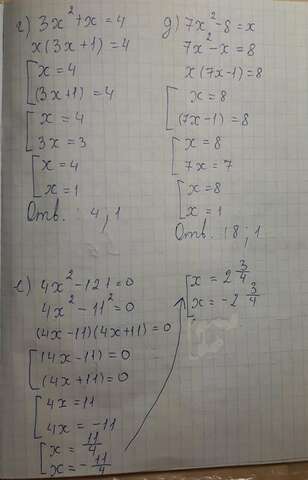 г) 3x² + x = 4
x(3x+1) = 4
[ x = 4
(3x+1) = 4
[ x = 4
3x = 3
[ x = 4
x = 1
Отв.: 4; 1
д) 7x² - 8 = x
7x² - x = 8
x(7x-1) = 8
[ x = 8
(7x-1) = 8
[ x = 8
7x = 7
[ x = 8
x = 1
Отв. : 8; 1
е) 4x² - 121 = 0
4x² - 11² = 0
(4x-11)(4x+11) = 0
[ (4x-11) = 0
(4x+11) = 0
[ 4x = 11
4x = -11
[ x = 11/4
x = - 11/4
[ x = 2 3/4
x = -2 3/4